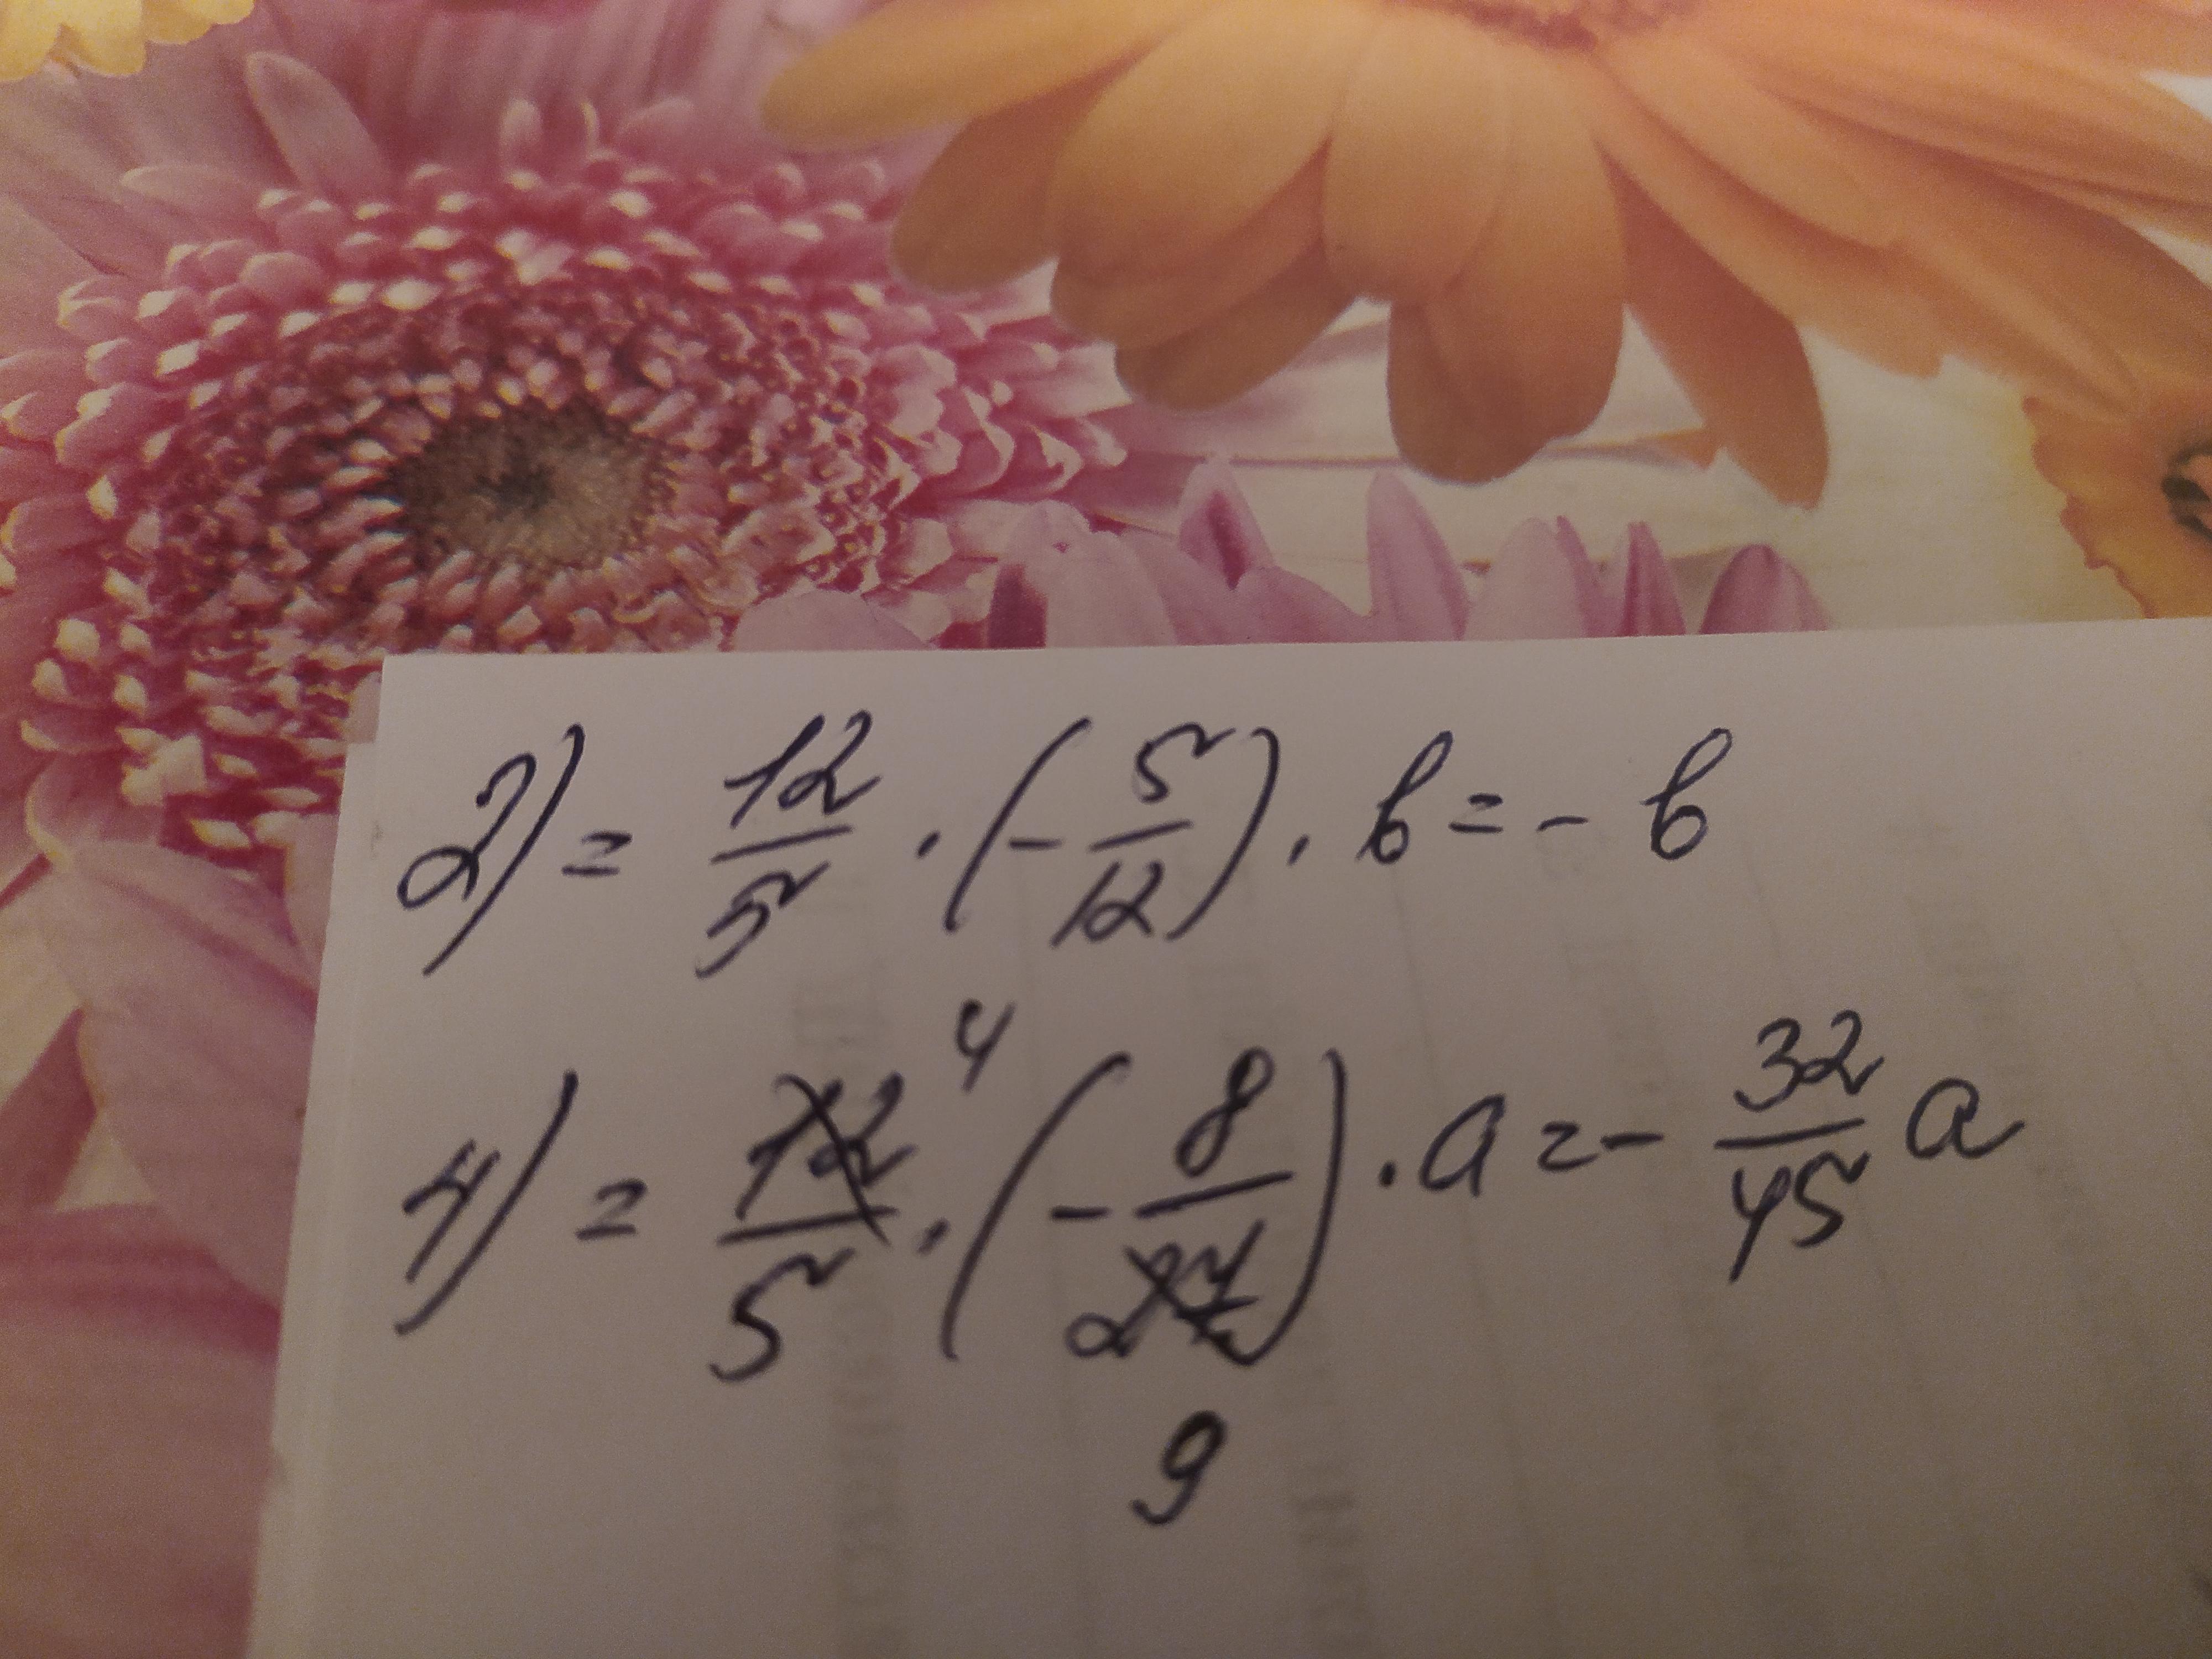 2) = 12/5 · (- 5/12) · b = - b
4) = 12/5 4 · (- 8/27) · a = - 32/45 a
9